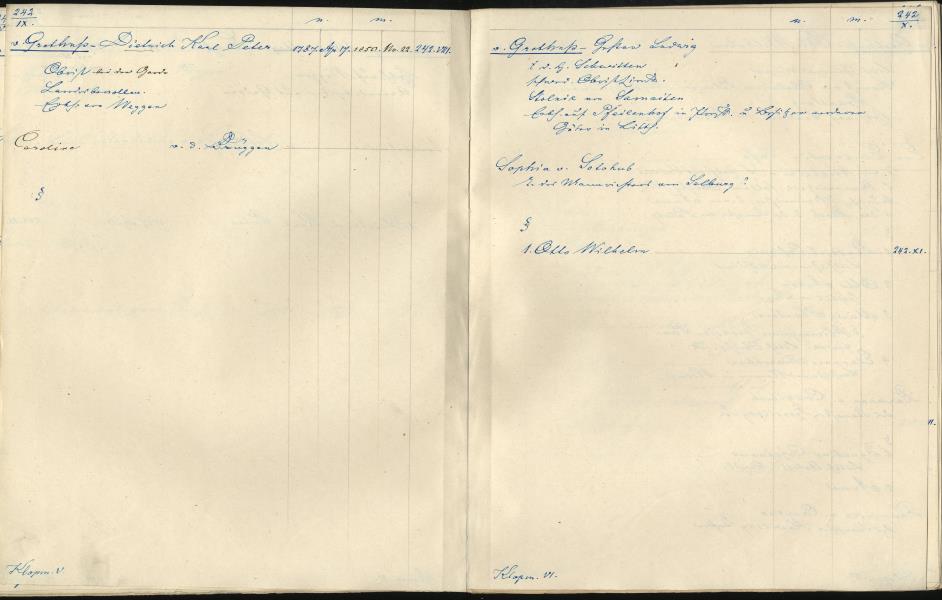 242
IX.
n. m.
v. Grotthuß - Dietrich Karl Peter 1787. Ap. 17. 1850. No. 22. 242. VIII.
Obrist bei der Garde
Landesbevollm.
Erbh. von Weggen
Caroline v. d. Brüggen
§
Klopm. V.
242
X.
n. m.
v. Grotthuß - Gustav Ludwig
z. d. H. Schwitten
schwed. Obristlieut.
Stolnik von Samaiten
Erbh. auf Pfeilenhof in u. Besitzer anderer
Güter in Litth.
Sophia v.
In der von Selburg?
§
1. Otto Wilhelm 242. XI.
Klopm. VI.